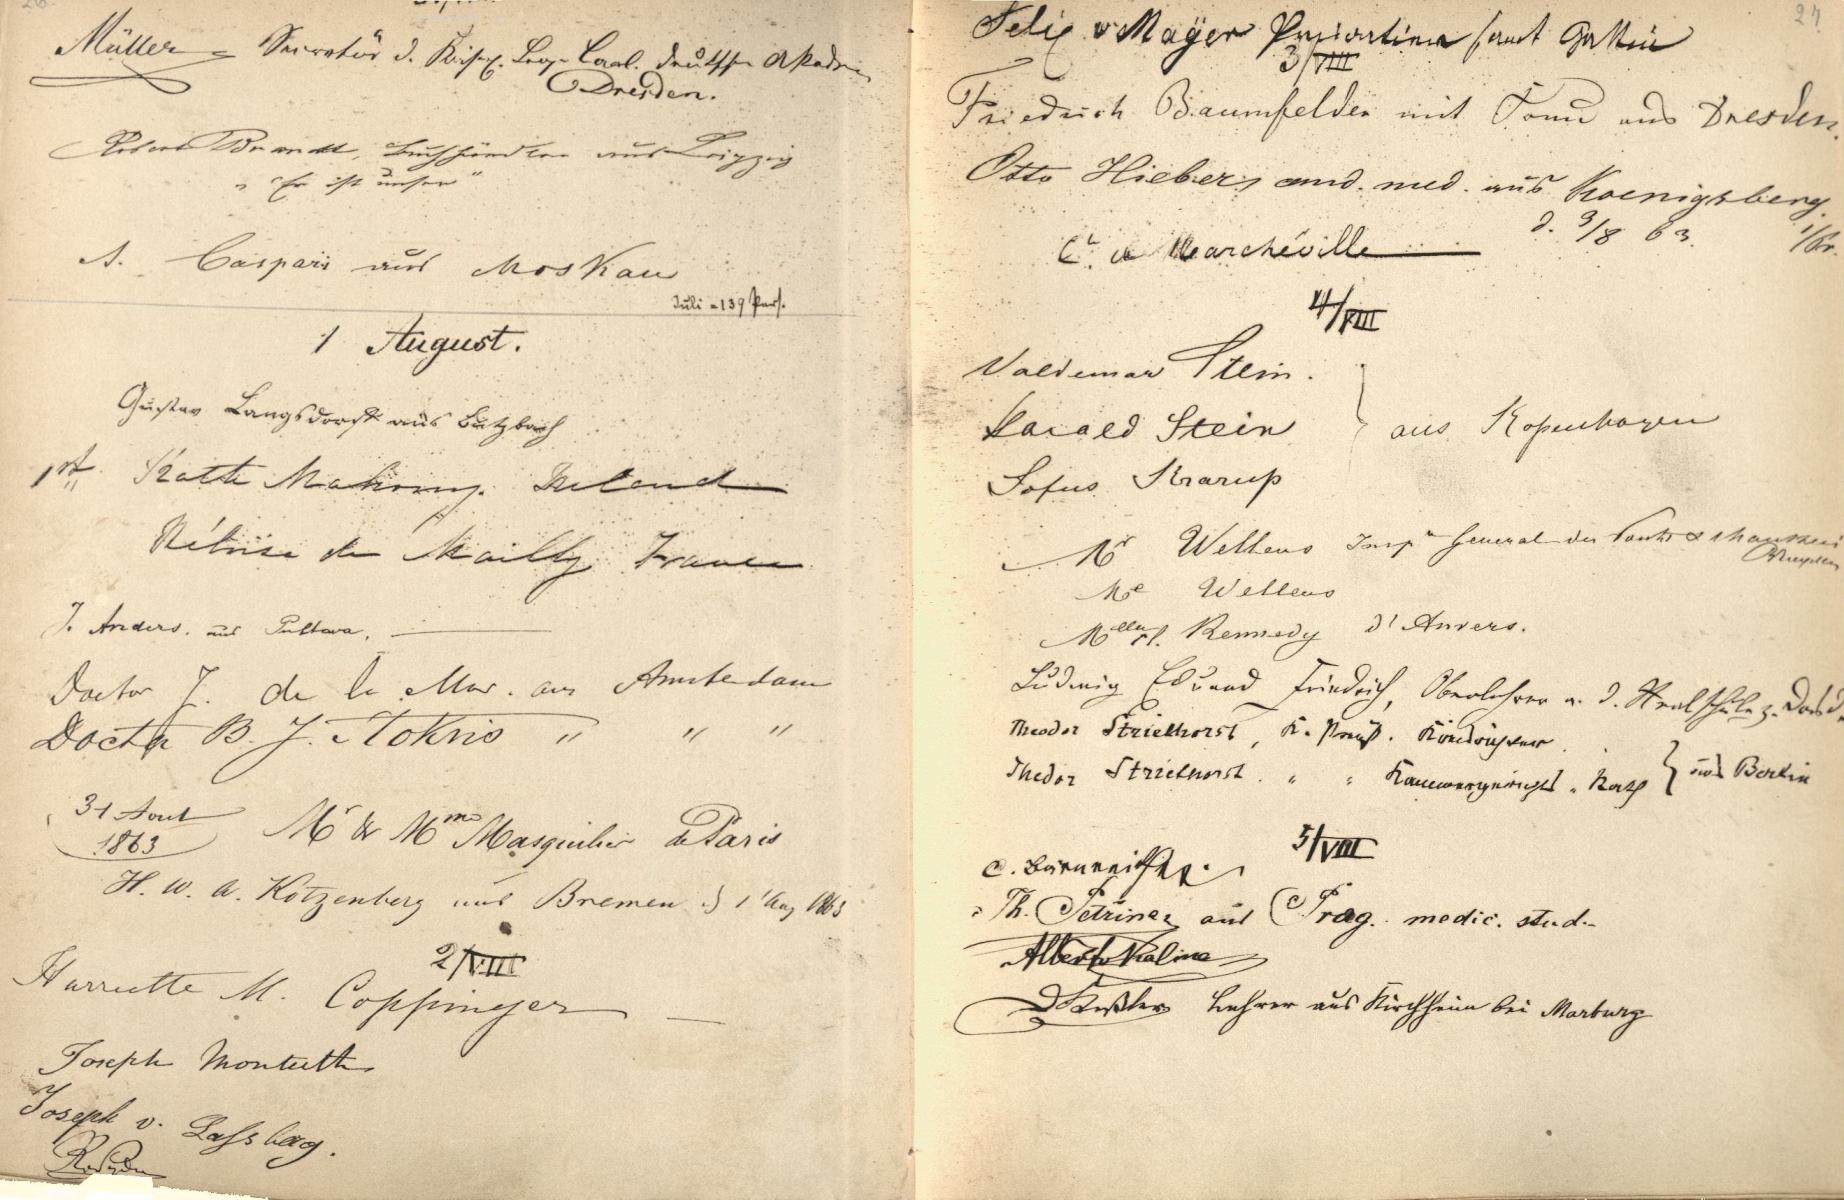 Müller Secretär d. Leop. Carol. deutsch. Akadem.
Dresden.
Robert Brandt, Buchhändler aus Leipzig
"Er ist unser"
A. Caspari aus Moskau
Juli = 139 Pers.
1 August.
Gustav Langsdorff aus Butzbach
1st Katte Mahony. Ireland
de Mailly France
J. Anders. aus Pultava.
Doctor J. de la Mar. aus Amsterdam
Doctor B. J. Stokvis " " "
31 Aout
1863
Mr & Mme Masquilier de Paris
H. W. A. Kotzenberg aus Bremen d 1 Aug 1863
2/VIII
Harriette M. Coppinger
Joseph Monteith
Joseph v. Lassberg.
27
Felix v Mayer samt Gattin
3/VIII
Friedrich Baumfelder mit Frau aus Dresden.
Otto Hieber, cand. med. aus Koenigsberg.
d. 3/8 63. i/Pr.
Ct. de Marcheville
4/VIII
Valdemar Stein.
Harald Stein
aus Kopenhagen
Sofus Krarup
Mr Wellens Inspr General des Ponts & chaussées
Bruxelles
Me Wellens
Melle Kennedy d'Anvers.
Ludwig Eduard Friedrich, Oberlehrer a. d. Realschule z.
Theodor Striethorst, K. Preuß.
Thedor Striethorst " " Kammergerichts-Rath
aus Berlin
5/VIII
Th. Petřina aus Prag. medic. stud.
Alberto Kalina
Lehrer aus Kirchheim bei Marburg